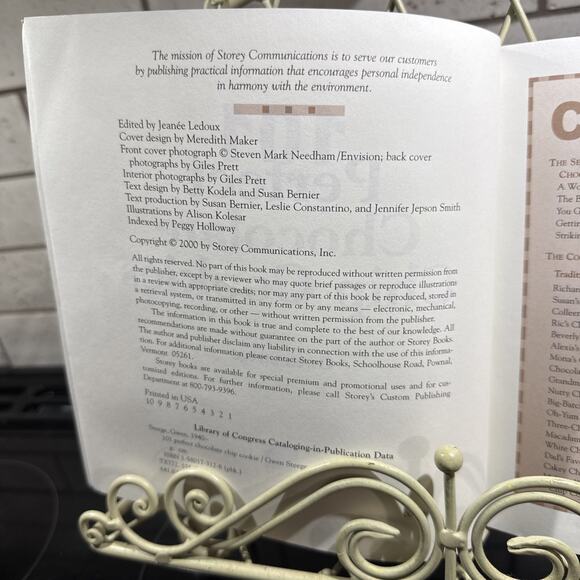 The mission of Storey Communications is to serve our customers
by publishing practical information that encourages personal independence
in harmony with the environment.
Edited by Jeanée Ledoux
Cover design by Meredith Maker
Front cover photograph © Steven Mark Needham/Envision; back cover
photographs by Giles Prett
Interior photographs by Giles Prett
Text design by Betty Kodela and Susan Bernier
Text production by Susan Bernier, Leslie Constantino, and Jennifer Jepson Smith
Illustrations by Alison Kolesar
Indexed by Peggy Holloway
Copyright © 2000 by Storey Communications, Inc.
All rights reserved. No part of this book may be reproduced without written permission from
the publisher, except by a reviewer who may quote brief passages or reproduce illustrations
in a review with appropriate credits; nor may any part of this book be reproduced, stored in
a retrieval system, or transmitted in any form or by any means — electronic, mechanical,
photocopying, recording, or other — without written permission from the publisher.
The information in this book is true and complete to the best of our knowledge. All
recommendations are made without guarantee on the part of the author or Storey Books.
The author and publisher disclaim any liability in connection with the use of this informa-
tion. For additional information please contact Storey Books, Schoolhouse Road, Pownal,
Vermont 05261.
Storey books are available for special premium and promotional uses and for cus-
tomized editions. For further information, please call Storey's Custom Publishing
Department at 800-793-9396.
Printed in USA
10 9 8 7 6 5 4 3 2 1
Library of Congress Cataloging-in-Publication Data
Steege, Gwen, 1940–
101 perfect chocolate chip cookies / Gwen Steege
p. cm.
ISBN 1-58017-312-8 (pbk.)
C
THE
CHOC
A WO
THE B
YOU G
GETTIN
STRIKIN
THE CO
TRADIT
RICHAR
SUSAN'S
COLLEEN
RIC'S C
BEVERLY
ALEXIS'
MONA'S
CHOCOLA
GRANDM
NUTTY C
BIG-BATC
OH-YUM
THREE-CH
MACADAM
WHITE CH
DAD'S FAV
CAKEY CH